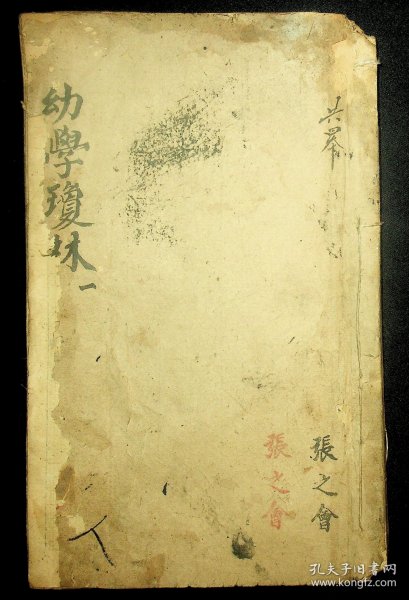 張之會
張之會
幼學瓊林一
人
孔夫子旧书网
www.kongfz.com